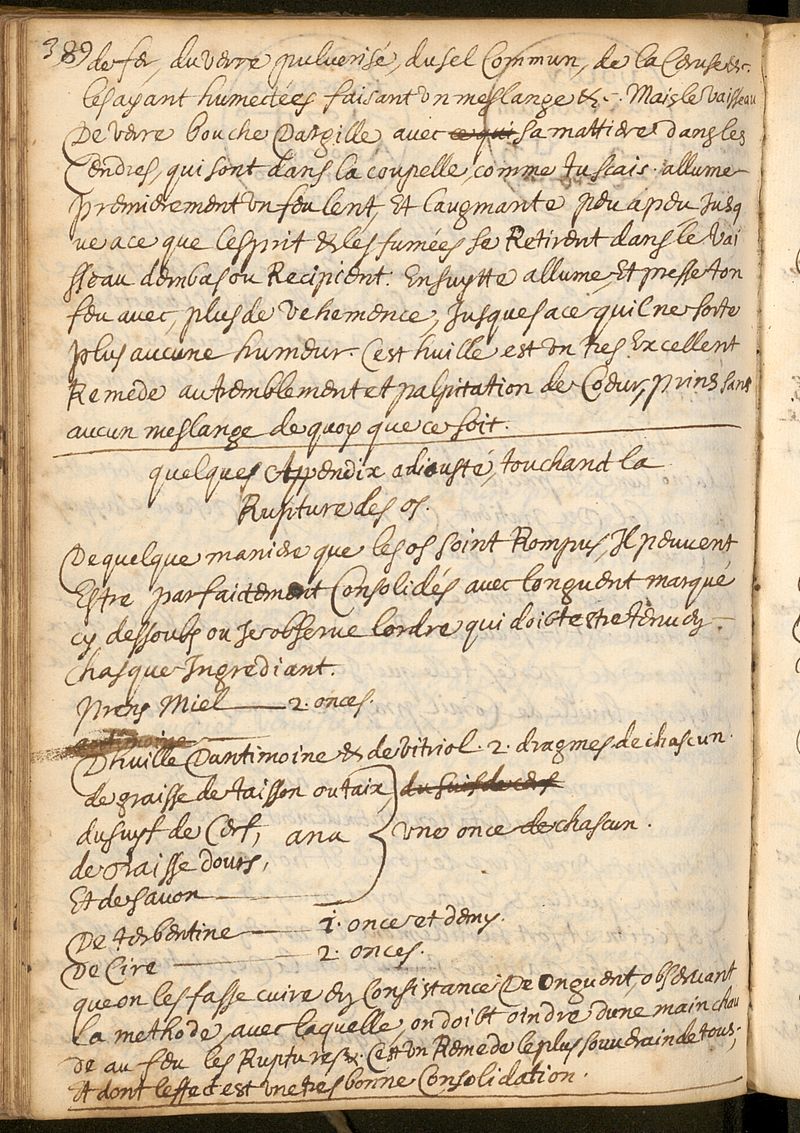 389
de fer, du verre pulverisé, du sel Commun, de la Ceruse &c.
les ayant humectées faisant un meslange &c. Mais le vaisseau
De verre bouche D'argille avec ce qui sa mattiere dans les
Cendres, qui sont dans la coupelle, comme tu scais. allume
premierement un feu lent, et l'augmante peu a peu Jusq
ue a ce que l'esprit & les fumées se Retirent dans le vai
sseau d'embas ou Recipient. Ensuytte allume, Et presse ton
feu avec, plus de vehemence, Jusques a ce qu'il ne sorte
plus aucune humeur. C'est huille est un tres Excellent
Remede au tremblement et palpitation de Coeur, prins sans
aucun meslange de quoy que ce soit.
quelques Appendix adiousté, touchand la
Rupture des os.
De quelque maniere que les os soint Rompus, Il peuvent
Estre parfaictement Consolidés avec l'onguent marqué
cy dessoubs ou Ie observe l'ordre qui doibt estre tenu en
Chasque Ingrediant.
prens Miel — 2. onces.
D'huille D'antimoine & de vitriol. 2. dragmes de chascun.
de graisse de taisson ou taix, du suif de cerf
du suyf de Cerf, ana une once de chascun.
de graisse d'ours,
Et de savon
De terbentine — 1. once et demy.
De Cire — 2. onces.
que on les fasse cuire en Consistance De Onguent, observant
la methode, avec laquelle on doibt oindre d'une main chau
de au feu les Ruptures. C'est un Remede le plus souverain de tous;
Et dont l'effect est une tres bonne Consolidation.